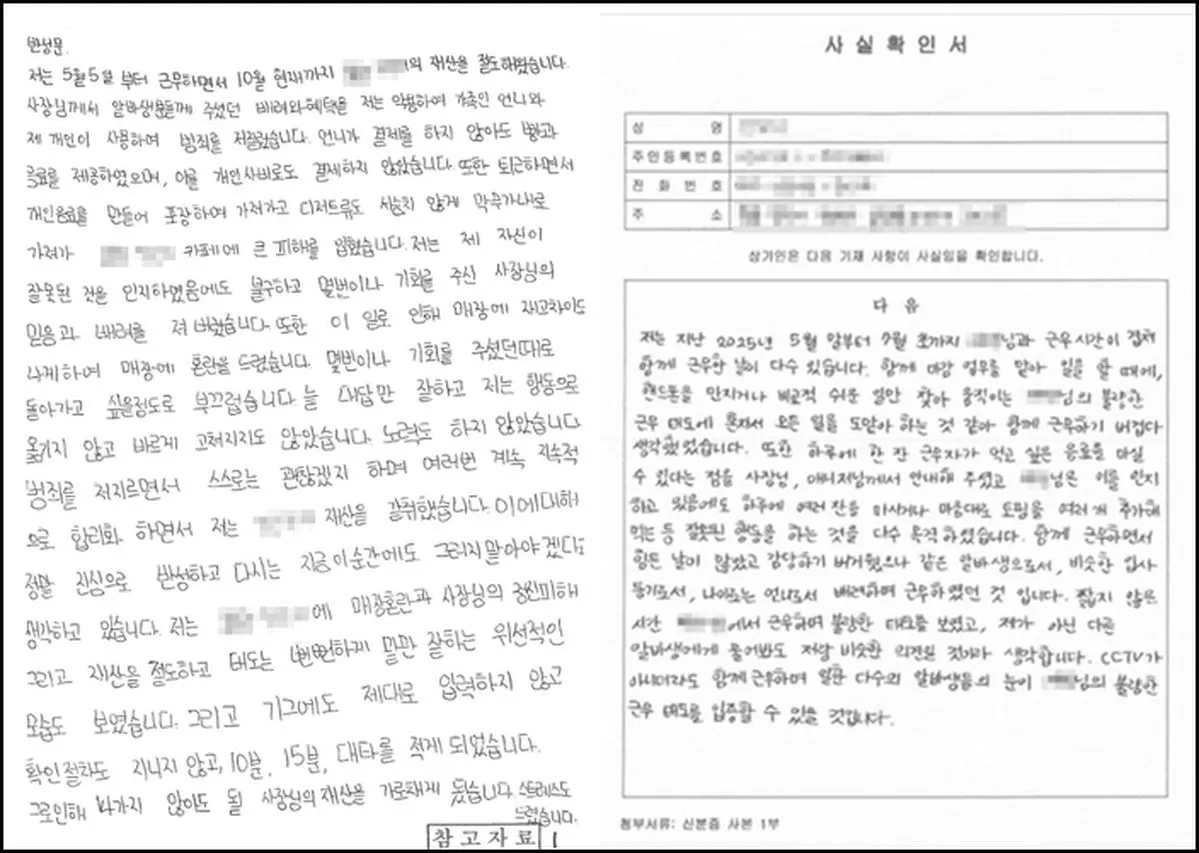 반성문.
저는 5월5일 부터 근무하면서 10월 현재까지 의 재산을 절도해왔습니다.
사장님께서 알바생분들께 주셨던 배려와 혜택을 저는 악용하여 가족인 언니와
제 개인이 사용하여 범죄를 저질렀습니다. 언니가 결제를 하지 않아도 빵과
음료를 제공하였으며, 이를 개인사비로도 결제하지 않았습니다. 또한 퇴근하면서
개인음료를 만들어 포장하여 가져가고 디저트류도 서슴치 않게 막무가내로
가져가 카페에 큰 피해를 입혔습니다. 저는 제 자신이
잘못된 것을 인지하였음에도 불구하고 몇번이나 기회를 주신 사장님의
믿음과 배려를 져 버렸습니다. 또한 이 일로 인해 매장에 재고차이도
나게하여 매장에 혼란을 드렸습니다. 몇번이나 기회를 주셨던때로
돌아가고 싶을정도로 부끄럽습니다. 늘 대답만 잘하고 저는 행동으로
옮기지 않고 바르게 고쳐지지도 않았습니다. 노력도 하지 않았습니다.
범죄를 저지르면서 스스로는 괜찮겠지 하며 여러번 계속 지속적
으로 합리화 하면서 저는 재산을 갈취했습니다. 이에대해
정말 진심으로 반성하고 다시는 지금 이순간에도 그러지 말아야겠다고
생각하고 있습니다. 저는 에 매장혼란과 사장님의 정신피해
그리고 재산을 절도하고 태도는 뻔뻔하게 말만 잘하는 위선적인
모습도 보였습니다. 그리고 기그에도 제대로 입력하지 않고
확인절차도 지니지 않고, 10분, 15분, 대타를 적게 되었습니다.
그로인해 나가지 않아도 될 사장님의 재산을 가로채게 됬습니다. 스트레스도
드렸습니다.
참고자료 1
사실확인서
성 명
주민등록번호
전화번호
주 소
상기인은 다음 기재 사항이 사실임을 확인합니다.
다 음
저는 지난 2025년 5월 말부터 9월 초까지 님과 근무시간이 겹쳐
함께 근무한 날이 다수 있습니다. 함께 마감 업무를 맡아 일을 할 때에,
핸드폰을 만지거나 비교적 쉬운 일만 찾아 움직이는 님의 불량한
근무 태도에 혼자서 모든 일을 도맡아 하는 것 같아 함께 근무하기 버겁다
생각했었습니다. 또한 하루에 한 잔 근무자가 먹고 싶은 음료를 마실
수 있다는 점을 사장님, 매니저님께서 안내해 주셨고 님은 이를 인지
하고 있음에도 하루에 여러 잔을 마시거나 마음대로 토핑을 여러 개 추가해
먹는 등 잘못된 행동을 하는 것을 다수 목격하였습니다. 함께 근무하면서
힘든 날이 많았고 감당하기 버거웠으나 같은 알바생으로서, 비슷한 입사
동기로서, 나이로는 언니로서 배려하며 근무하였던 것 입니다. 짧지 않은
시간 에서 근무하며 불량한 태도를 보였고, 제가 아닌 다른
알바생에게 물어봐도 저랑 비슷한 의견일 것이라 생각합니다. CCTV가
아니더라도 함께 근무하며 일한 다수의 알바생들의 눈이 님의 불량한
근무 태도를 입증할 수 있을 것입니다.
첨부서류: 신분증 사본 1부